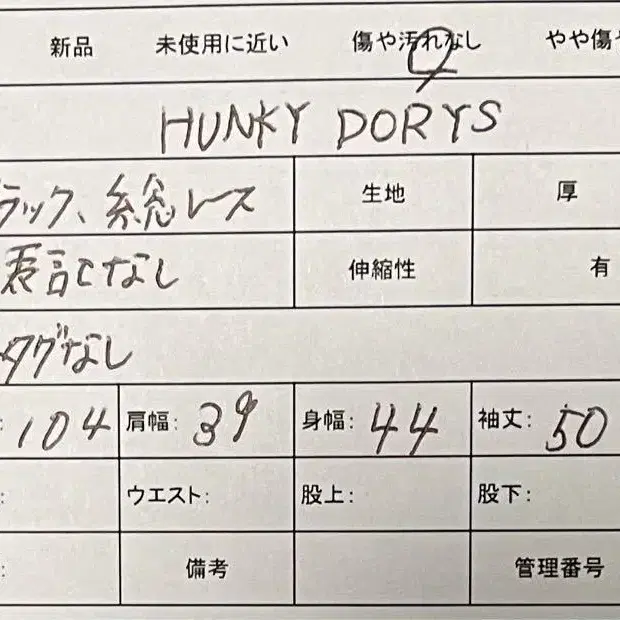 新品 未使用に近い 傷や汚れなし やや傷
HUNKY DORYS
ラック、総レース 生地 厚
表記なし 伸縮性 有
タグなし
: 104 肩幅: 39 身幅: 44 袖丈: 50
: ウエスト: 股上: 股下:
: 備考 管理番号